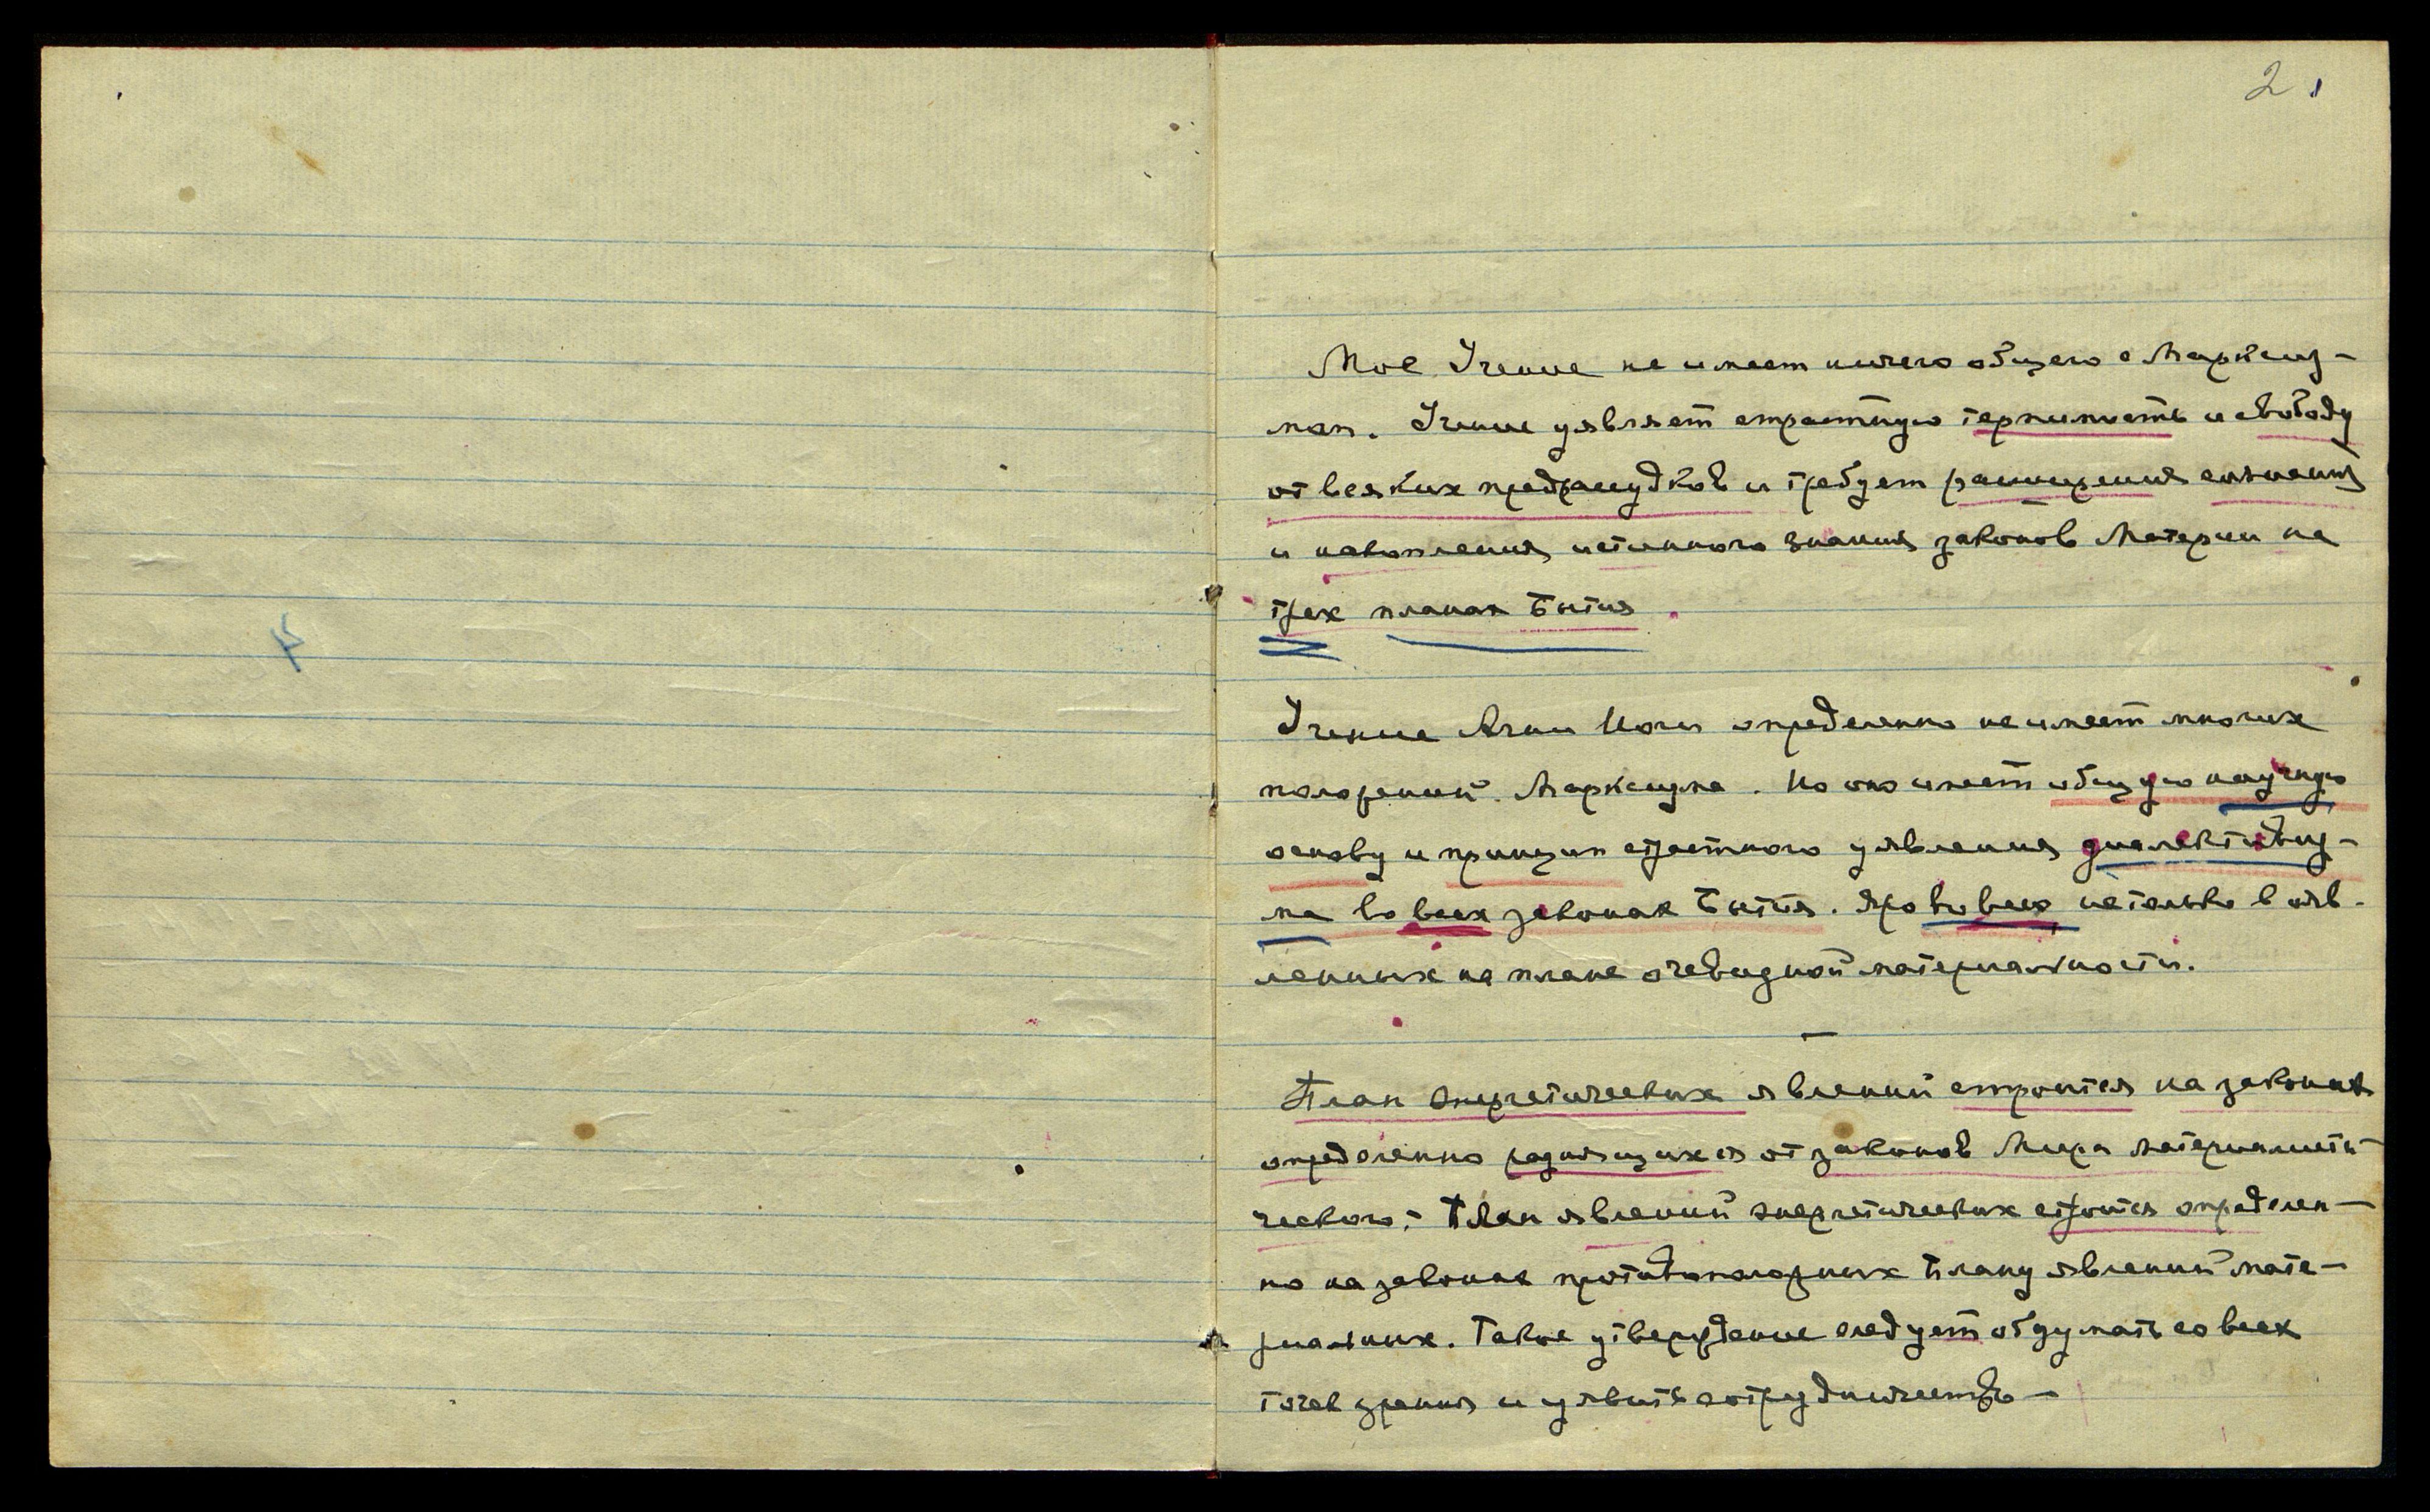 2.
Мое Учение не имеет ничего общего с Марксиз-
мом. Учение уявляет страстную терпимость и свободу
от всяких предрассудков и требует расширения сознания
и накопления истинного знания законов Материи на
трех планах Бытия.
Учение Агни Йоги определенно не имеет многих
положений Марксизма. Но оно имеет общую научную
основу и принцип страстного уявления диалективиз-
ма во всех законах Бытия. Яро во всех не только в явв-
ленных на плане очевидной материальности.
—
План энергетических явлений строится на законах
определенно разнящихся от законов Мира материалисти-
ческого. – План явлений энергетических строится определен-
но на законах противоположных плану явлений мате-
риальных. Такое утверждение следует обдумать со всех
точек зрения и уявить сотрудничество —